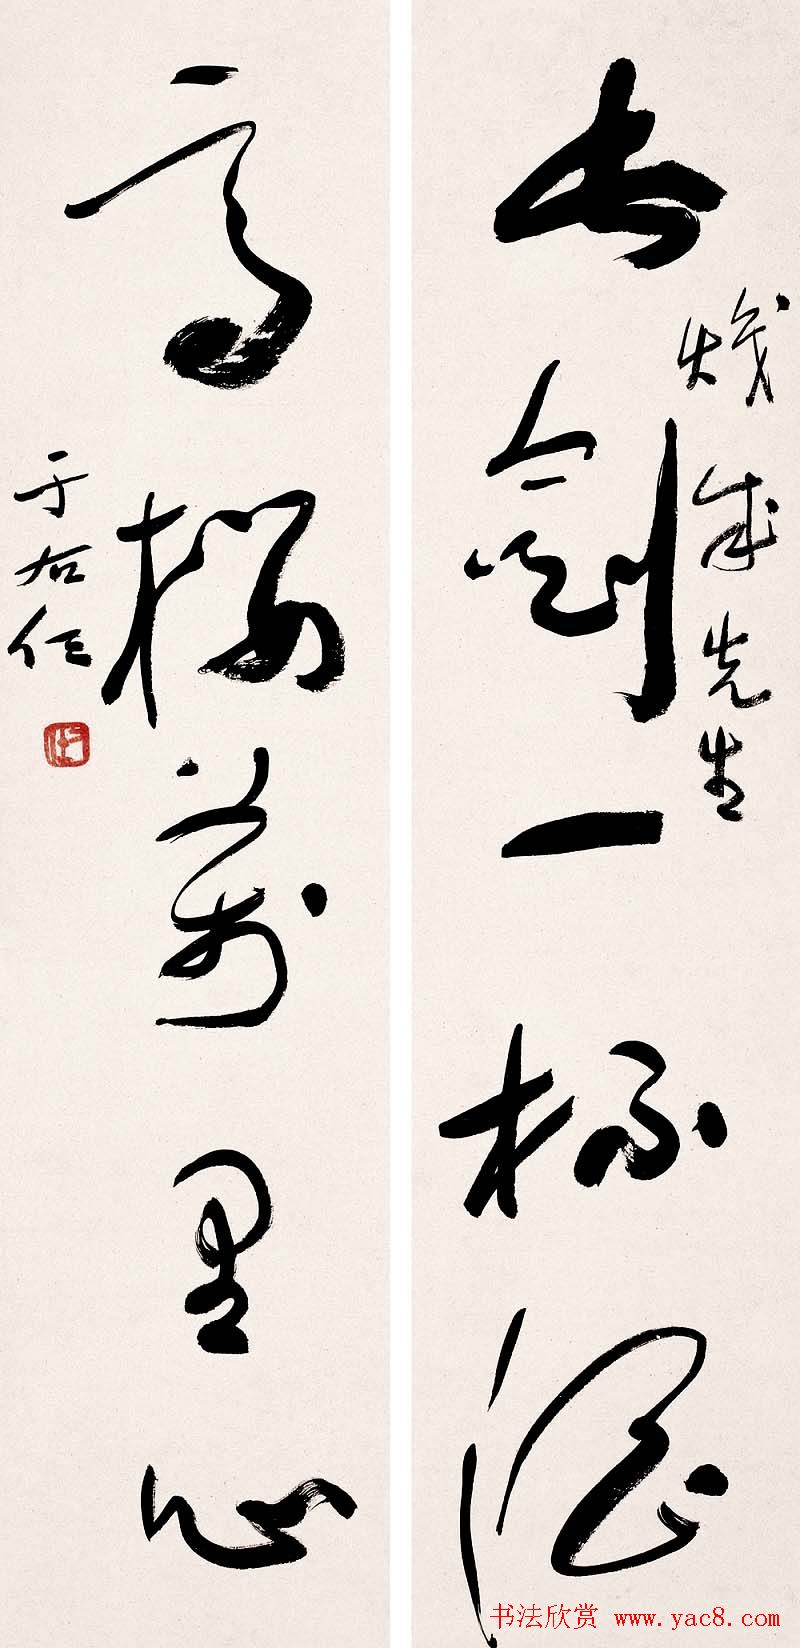 长剑一杯酒
炽成先生
高楼万里心
于右任
书法欣赏 www.yac8.com